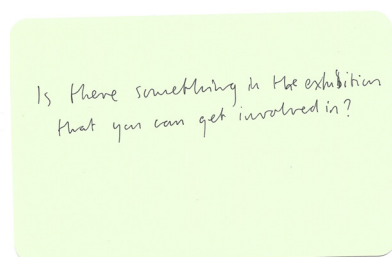 Is there something in the exhibition
that you can get involved in?